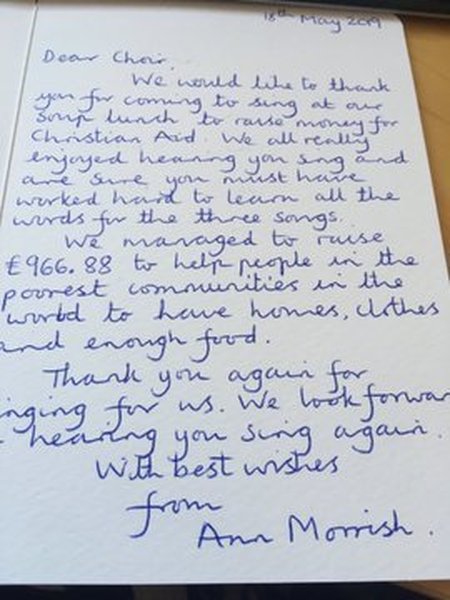 18th May 2019
Dear Choir,
We would like to thank
you for coming to sing at our
Soup lunch to raise money for
Christian Aid. We all really
enjoyed hearing you sing and
are sure you must have
worked hard to learn all the
words for the three songs.
We managed to raise
£966.88 to help people in the
poorest communities in the
world to have homes, clothes
and enough food.
Thank you again for
inging for us. We look forwar
hearing you sing again.
With best wishes
from
Ann Morrish.